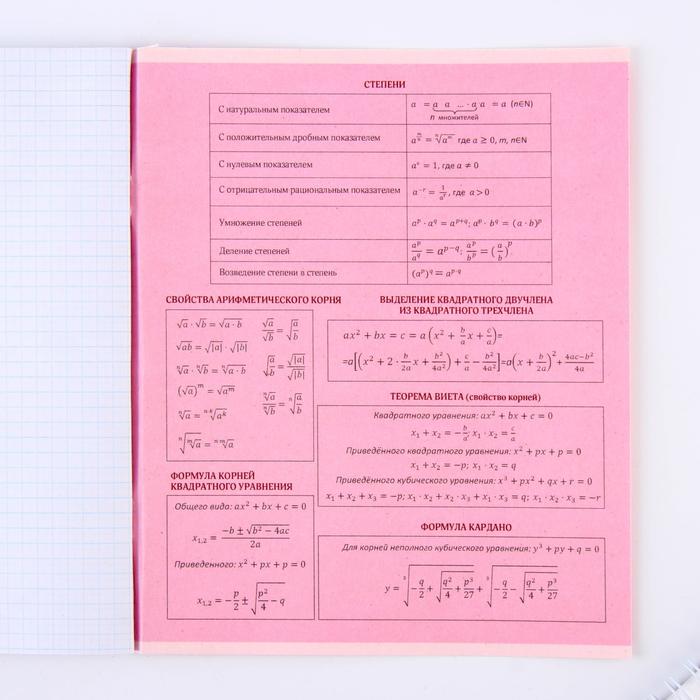 СТЕПЕНИ
С натуральным показателем a = a a ... · a a = a (n∈N)
n множителей
С положительным дробным показателем a^(m/n) = ⁿ√aᵐ где a ≥ 0, m, n∈N
С нулевым показателем a° = 1, где a ≠ 0
С отрицательным рациональным показателем a⁻ʳ = 1/aʳ, где a > 0
Умножение степеней aᵖ · a^q = a^(p+q); aᵖ · b^q = (a · b)ᵖ
Деление степеней aᵖ/a^q = a^(p−q); aᵖ/bᵖ = (a/b)ᵖ
Возведение степени в степень (aᵖ)^q = a^(p·q)
СВОЙСТВА АРИФМЕТИЧЕСКОГО КОРНЯ
√a · √b = √(a · b) √a/√b = √(a/b)
√ab = √|a| · √|b| √(a/b) = √|a|/√|b|
ⁿ√a · ⁿ√b = ⁿ√(a · b)
(√a)ᵐ = √aᵐ
ⁿ√a = ⁿ·ᵏ√aᵏ ⁿ√a/ⁿ√b = ⁿ√(a/b)
ⁿ√(ᵐ√a) = ⁿᵐ√a
ВЫДЕЛЕНИЕ КВАДРАТНОГО ДВУЧЛЕНА
ИЗ КВАДРАТНОГО ТРЕХЧЛЕНА
ax² + bx = c = a(x² + b/a x + c/a)=
=a[(x² + 2 · b/2a x + b²/4a²) + c/a − b²/4a²]=a(x + b/2a)² + (4ac−b²)/4a
ТЕОРЕМА ВИЕТА (свойство корней)
Квадратного уравнения: ax² + bx + c = 0
x₁ + x₂ = −b/a; x₁ · x₂ = c/a
Приведённого квадратного уравнения: x² + px + p = 0
x₁ + x₂ = −p; x₁ · x₂ = q
Приведённого кубического уравнения: x³ + px² + qx + r = 0
x₁ + x₂ + x₃ = −p; x₁ · x₂ + x₂ · x₃ + x₁ · x₃ = q; x₁ · x₂ · x₃ = −r
ФОРМУЛА КОРНЕЙ
КВАДРАТНОГО УРАВНЕНИЯ
Общего вида: ax² + bx + c = 0
x₁,₂ = (−b ± √(b² − 4ac))/2a
Приведенного: x² + px + p = 0
x₁,₂ = −p/2 ± √(p²/4 − q)
ФОРМУЛА КАРДАНО
Для корней неполного кубического уравнения: y³ + py + q = 0
y = ³√(−q/2 + √(q²/4 + p³/27)) + ³√(−q/2 − √(q²/4 + p³/27))